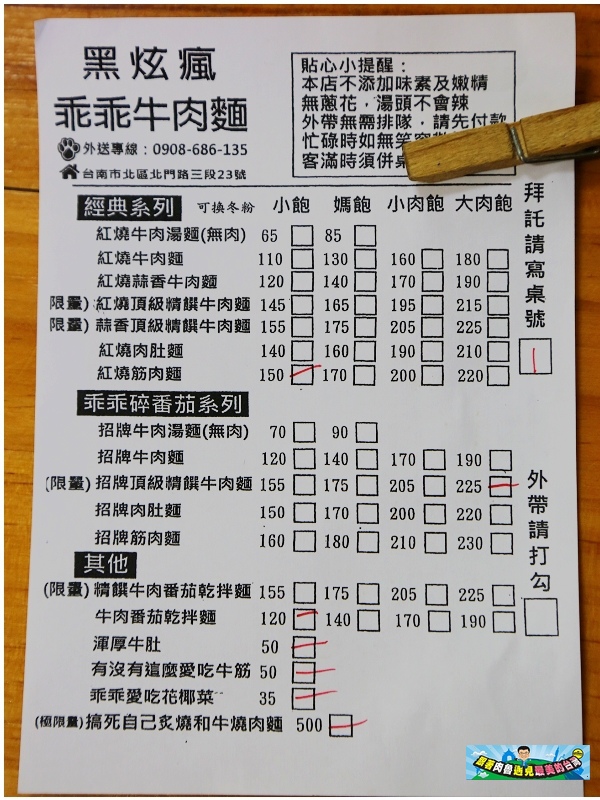 黑炫瘋
乖乖牛肉麵
外送專線：0908-686-135
台南市北區北門路三段23號
貼心小提醒：
本店不添加味素及嫩精
無蔥花，湯頭不會辣
外帶無需排隊，請先付款
忙碌時如無笑容
客滿時須併桌
拜託請寫桌號
1
經典系列 可換冬粉 小飽 媽飽 小肉飽 大肉飽
紅燒牛肉湯麵(無肉) 65 85
紅燒牛肉麵 110 130 160 180
紅燒蒜香牛肉麵 120 140 170 190
限量) 紅燒頂級精饌牛肉麵 145 165 195 215
限量) 蒜香頂級精饌牛肉麵 155 175 205 225
紅燒肉肚麵 140 160 190 210
紅燒筋肉麵 150 170 200 220
乖乖碎番茄系列
招牌牛肉湯麵(無肉) 70 90
招牌牛肉麵 120 140 170 190
(限量) 招牌頂級精饌牛肉麵 155 175 205 225
招牌肉肚麵 150 170 200 220
招牌筋肉麵 160 180 210 230
外帶請打勾
其他
(限量) 精饌牛肉番茄乾拌麵 155 175 205 225
牛肉番茄乾拌麵 120 140 170 190
渾厚牛肚 50
有沒有這麼愛吃牛筋 50
乖乖愛吃花椰菜 35
(極限量) 搞死自己炙燒和牛燒肉麵 500
跟著肉魯遇見最美的台灣